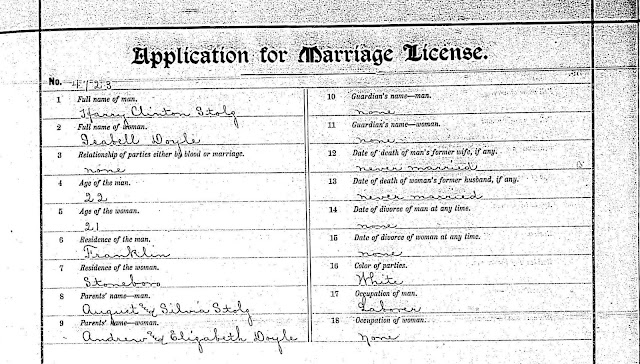 Application for Marriage License.
No. 4723
1 Full name of man.
Harry Clinton Stolz
2 Full name of woman.
Isabell Doyle
3 Relationship of parties either by blood or marriage.
none
4 Age of the man.
22
5 Age of the woman.
21
6 Residence of the man.
Franklin
7 Residence of the woman.
Stoneboro
8 Parents' name—man.
August & Silvia Stolz
9 Parents' name—woman.
Andrew & Elizabeth Doyle
10 Guardian's name—man.
none
11 Guardian's name—woman.
none
12 Date of death of man's former wife, if any.
never married
13 Date of death of woman's former husband, if any.
never married
14 Date of divorce of man at any time.
none
15 Date of divorce of woman at any time.
none
16 Color of parties.
White
17 Occupation of man.
Laborer
18 Occupation of woman.
None